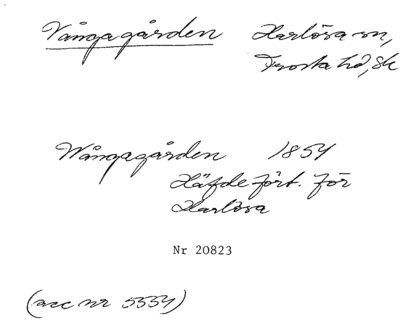 Vångagården Harlösa sn,
Frosta hd, Sk
Wångagården 1854
Häfdefört. för
Harlösa
Nr 20823
(acc nr 5554)